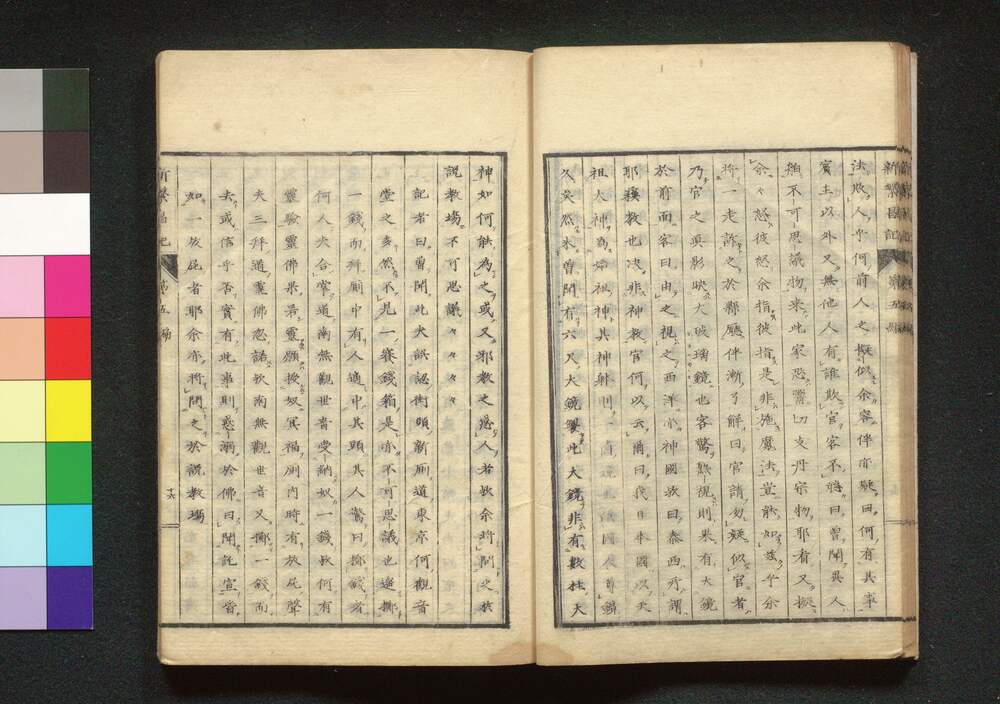 新繁昌記
法欺人乎何前人之擬似余容伴亦疑曰何有其事
實主以外又無他人有誰欺官客不曰曾聞異人
頗不可思議物来此家恐需切支丹宗物耶看又擬
余々怒彼怒余指彼指是非施魔法豈能如茲乎余
將一走訴之於縣廳伴漸了解曰官請勿疑似官者
乃官之真影映大玻璃鏡也客驚熟視則果有大鏡
於前面客曰由之視之西洋亦神國歟曰泰西所謂
耶蘇教也决非神教官何以云爾曰我日本國以天
祖大神為始祖神其神射
久矣然未曾聞有六尺大鏡此大鏡非有數柱天
神如何能為之或又邪教之惑人者歟余將聞之於
説教場不可思議々々々々
記者曰曽聞此夫誤認街頭新厠道東京何觀音
堂之多然不見一賽錢箱是亦不可思議也遂擲
一錢而拜厠中有人適中其頭其人驚曰擲錢者
何人夫合掌道南無觀世音受納奴一錢歟何有
靈驗靈佛果若靈願授奴冥福厠内時有放屁聲
夫三拜道靈佛忽諾歟南無觀世音又擲一錢而
去或信乎否實有此事則惑溺於佛曰聞託宣當
如一放屁者耶余亦將問之於説教場
新繁昌記 第五編